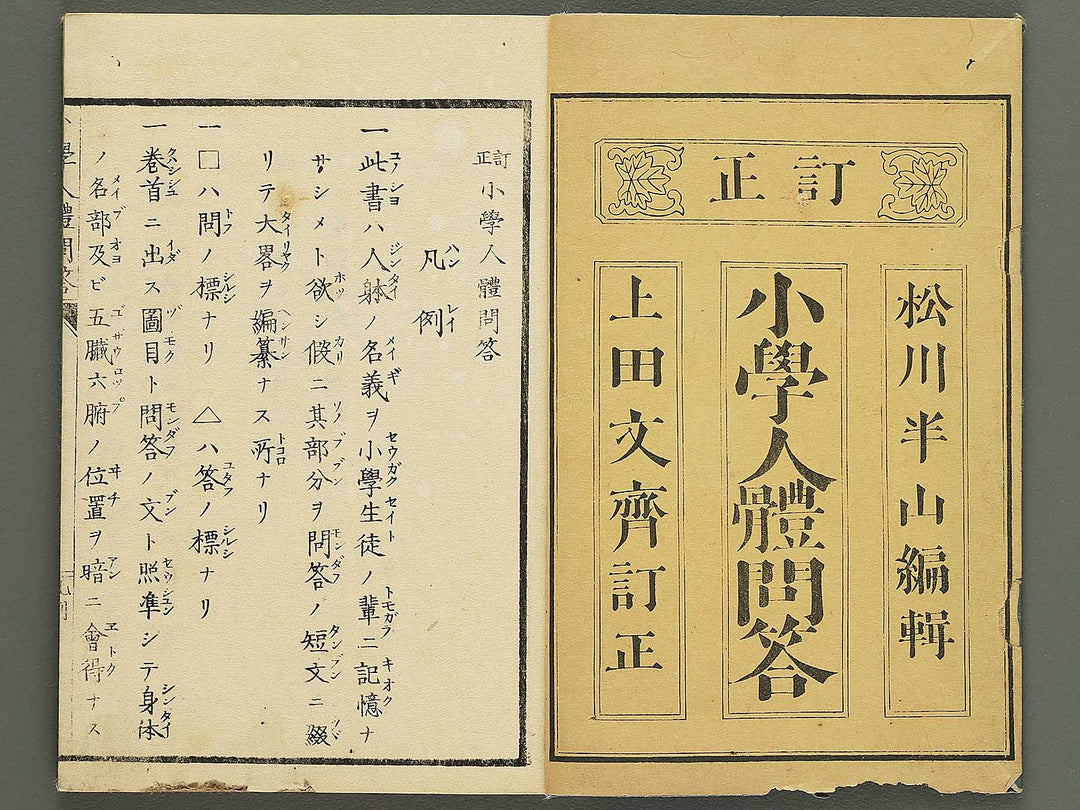 訂正
松川半山編輯
小學人體問答
上田文齊訂正
訂正小學人體問答
凡例
一此書ハ人躰ノ名義ヲ小學生徒ノ輩ニ記憶ナ
サシメト欲シ假ニ其部分ヲ問答ノ短文ニ綴
リテ大畧ヲ編纂ナス所ナリ
一□ハ問ノ標ナリ △ハ答ノ標ナリ
一卷首ニ出ス圖目ト問答ノ文ト照準シテ身体
ノ名部及ビ五臓六腑ノ位置ヲ暗ニ會得ナス
小學人體問答